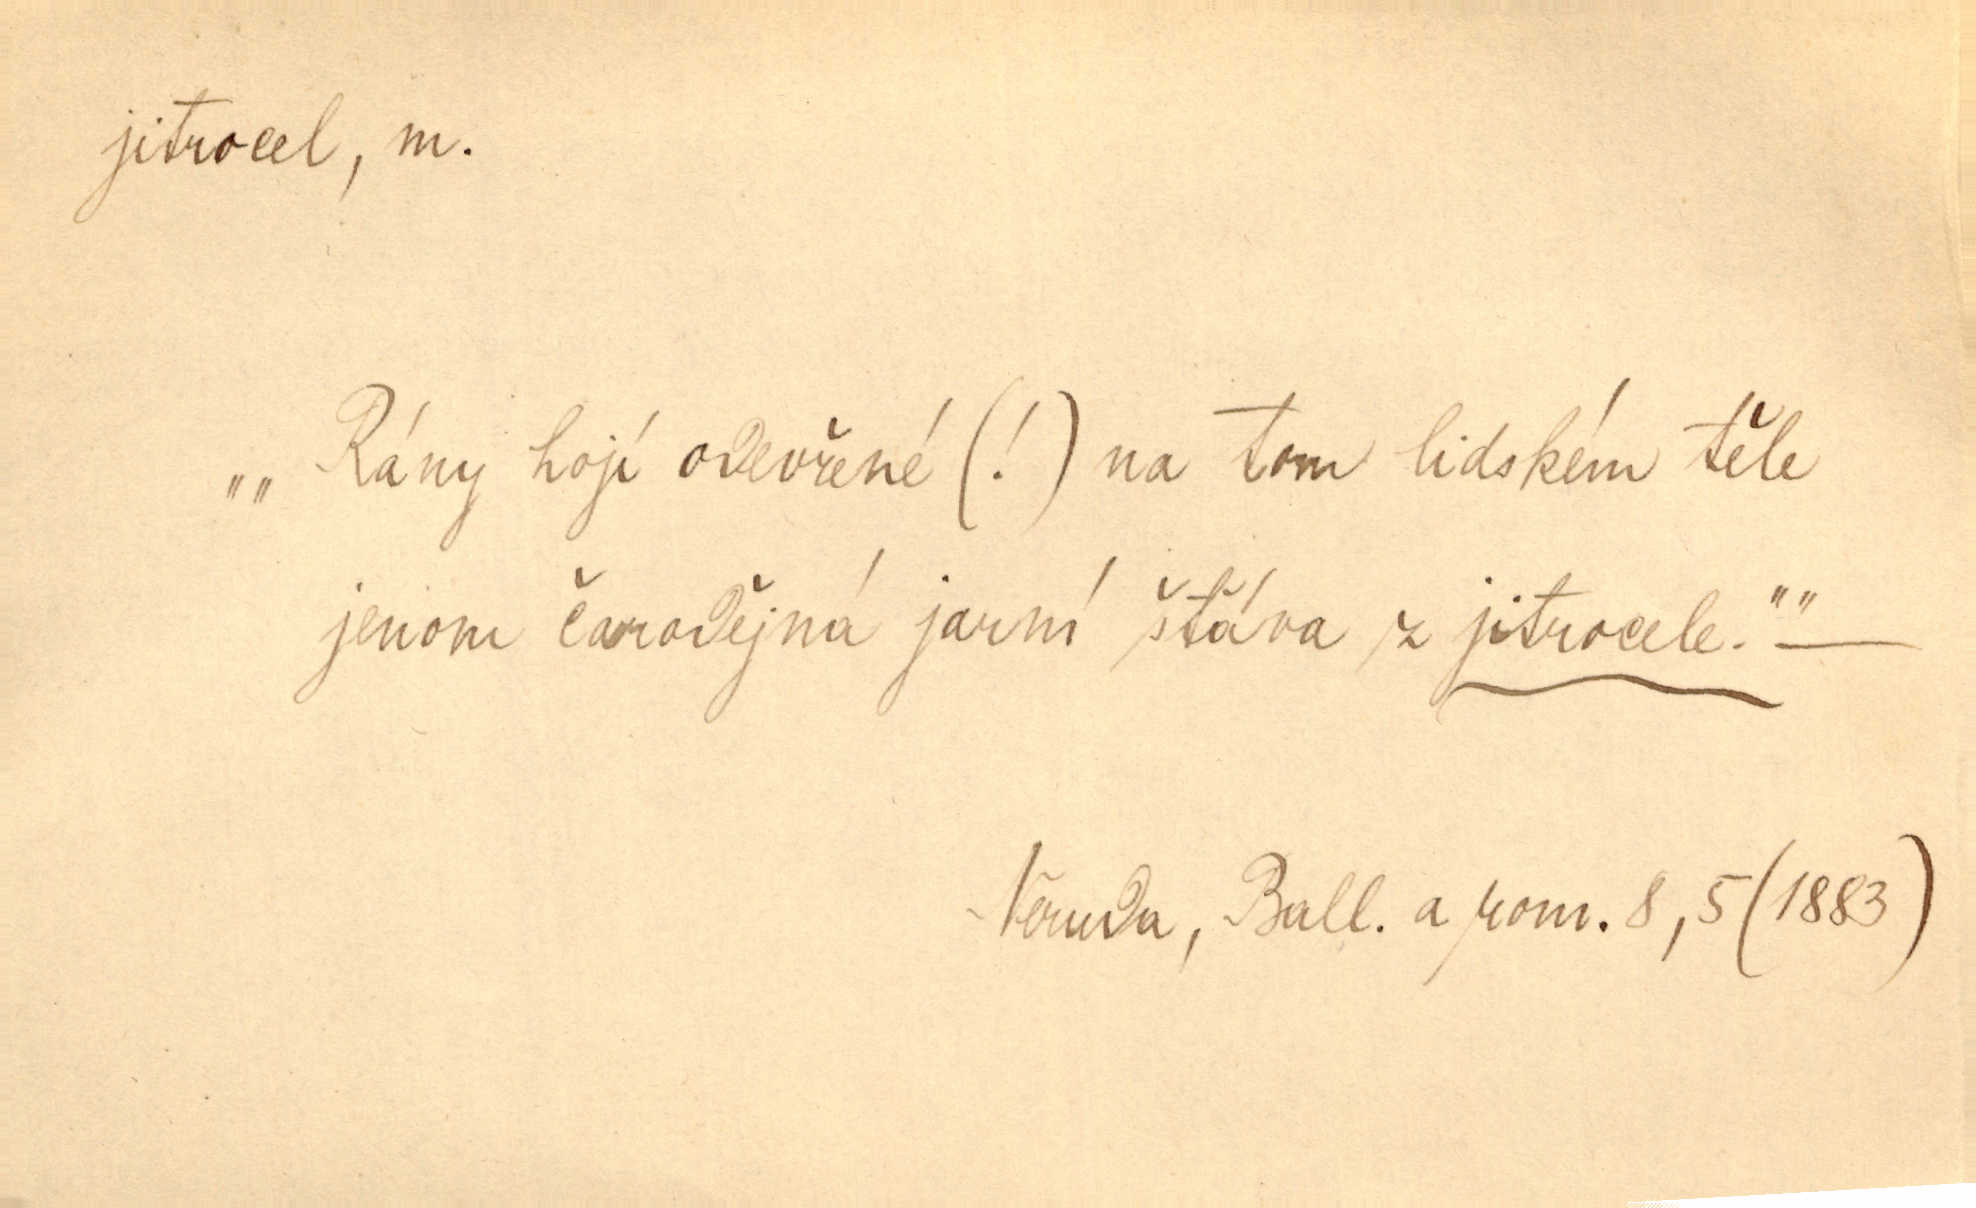 jitrocel, m.
„„ Rány hojí odevřené (!) na tom lidském těle
jenom čarodějná jarní šťáva z jitrocele."" —
Neruda, Ball. a rom. 8, 5 (1883)